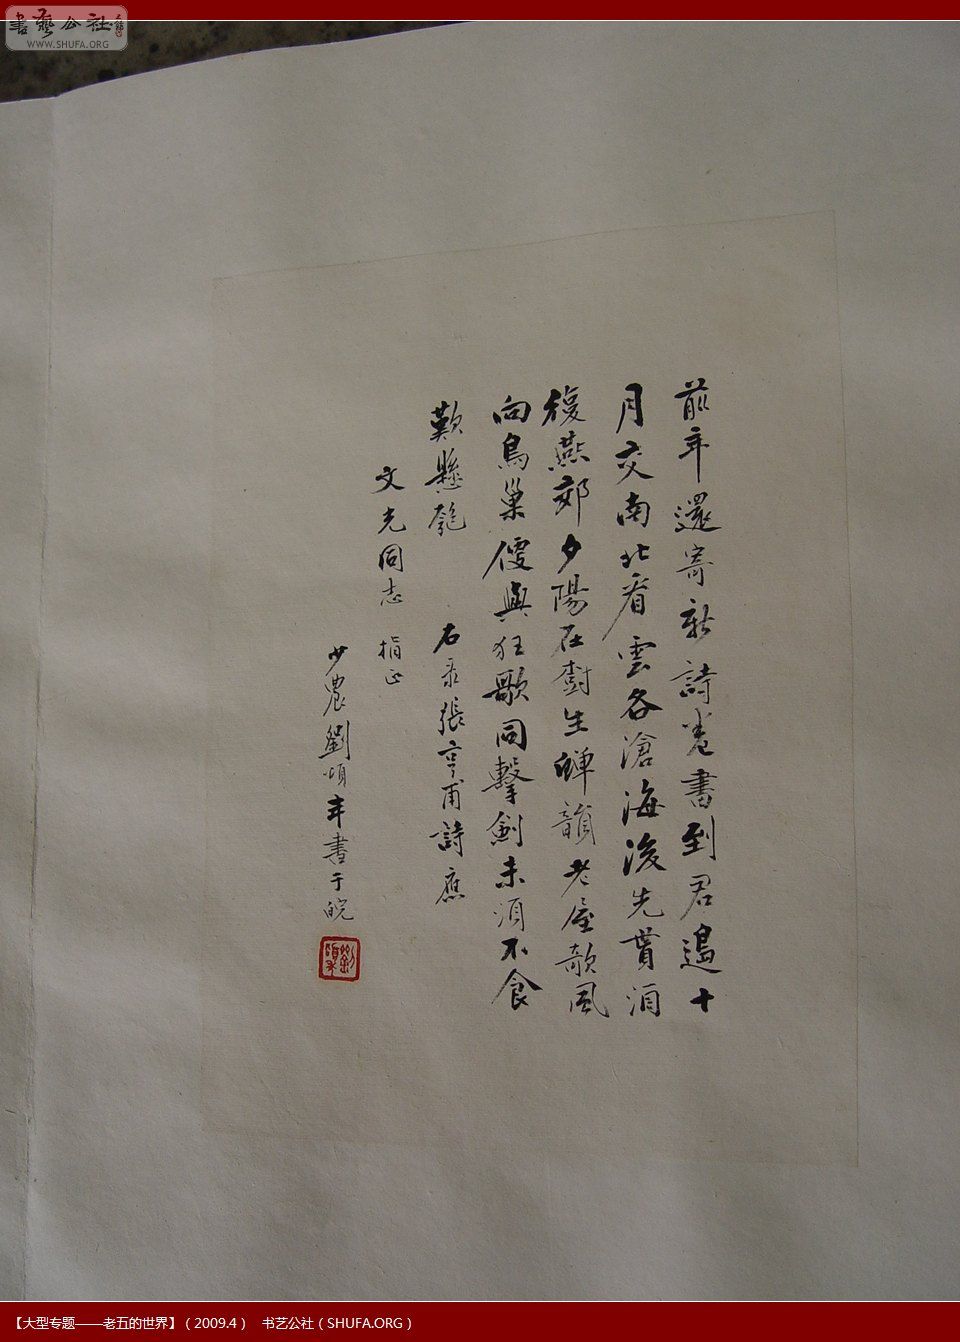 書藝公社
WWW.SHUFA.ORG
前年還寄新詩卷書到君邊十
月交南北看雲各滄海後先貰酒
復燕郊夕陽在樹生蟬韻老屋欹風
向鳥巢儘與狂歌同擊劍未須不食
歎懸匏 右录張亨甫詩應
文光同志 指正
少農劉頌年書于皖
【大型专题——老五的世界】（2009.4） 书艺公社（SHUFA.ORG）